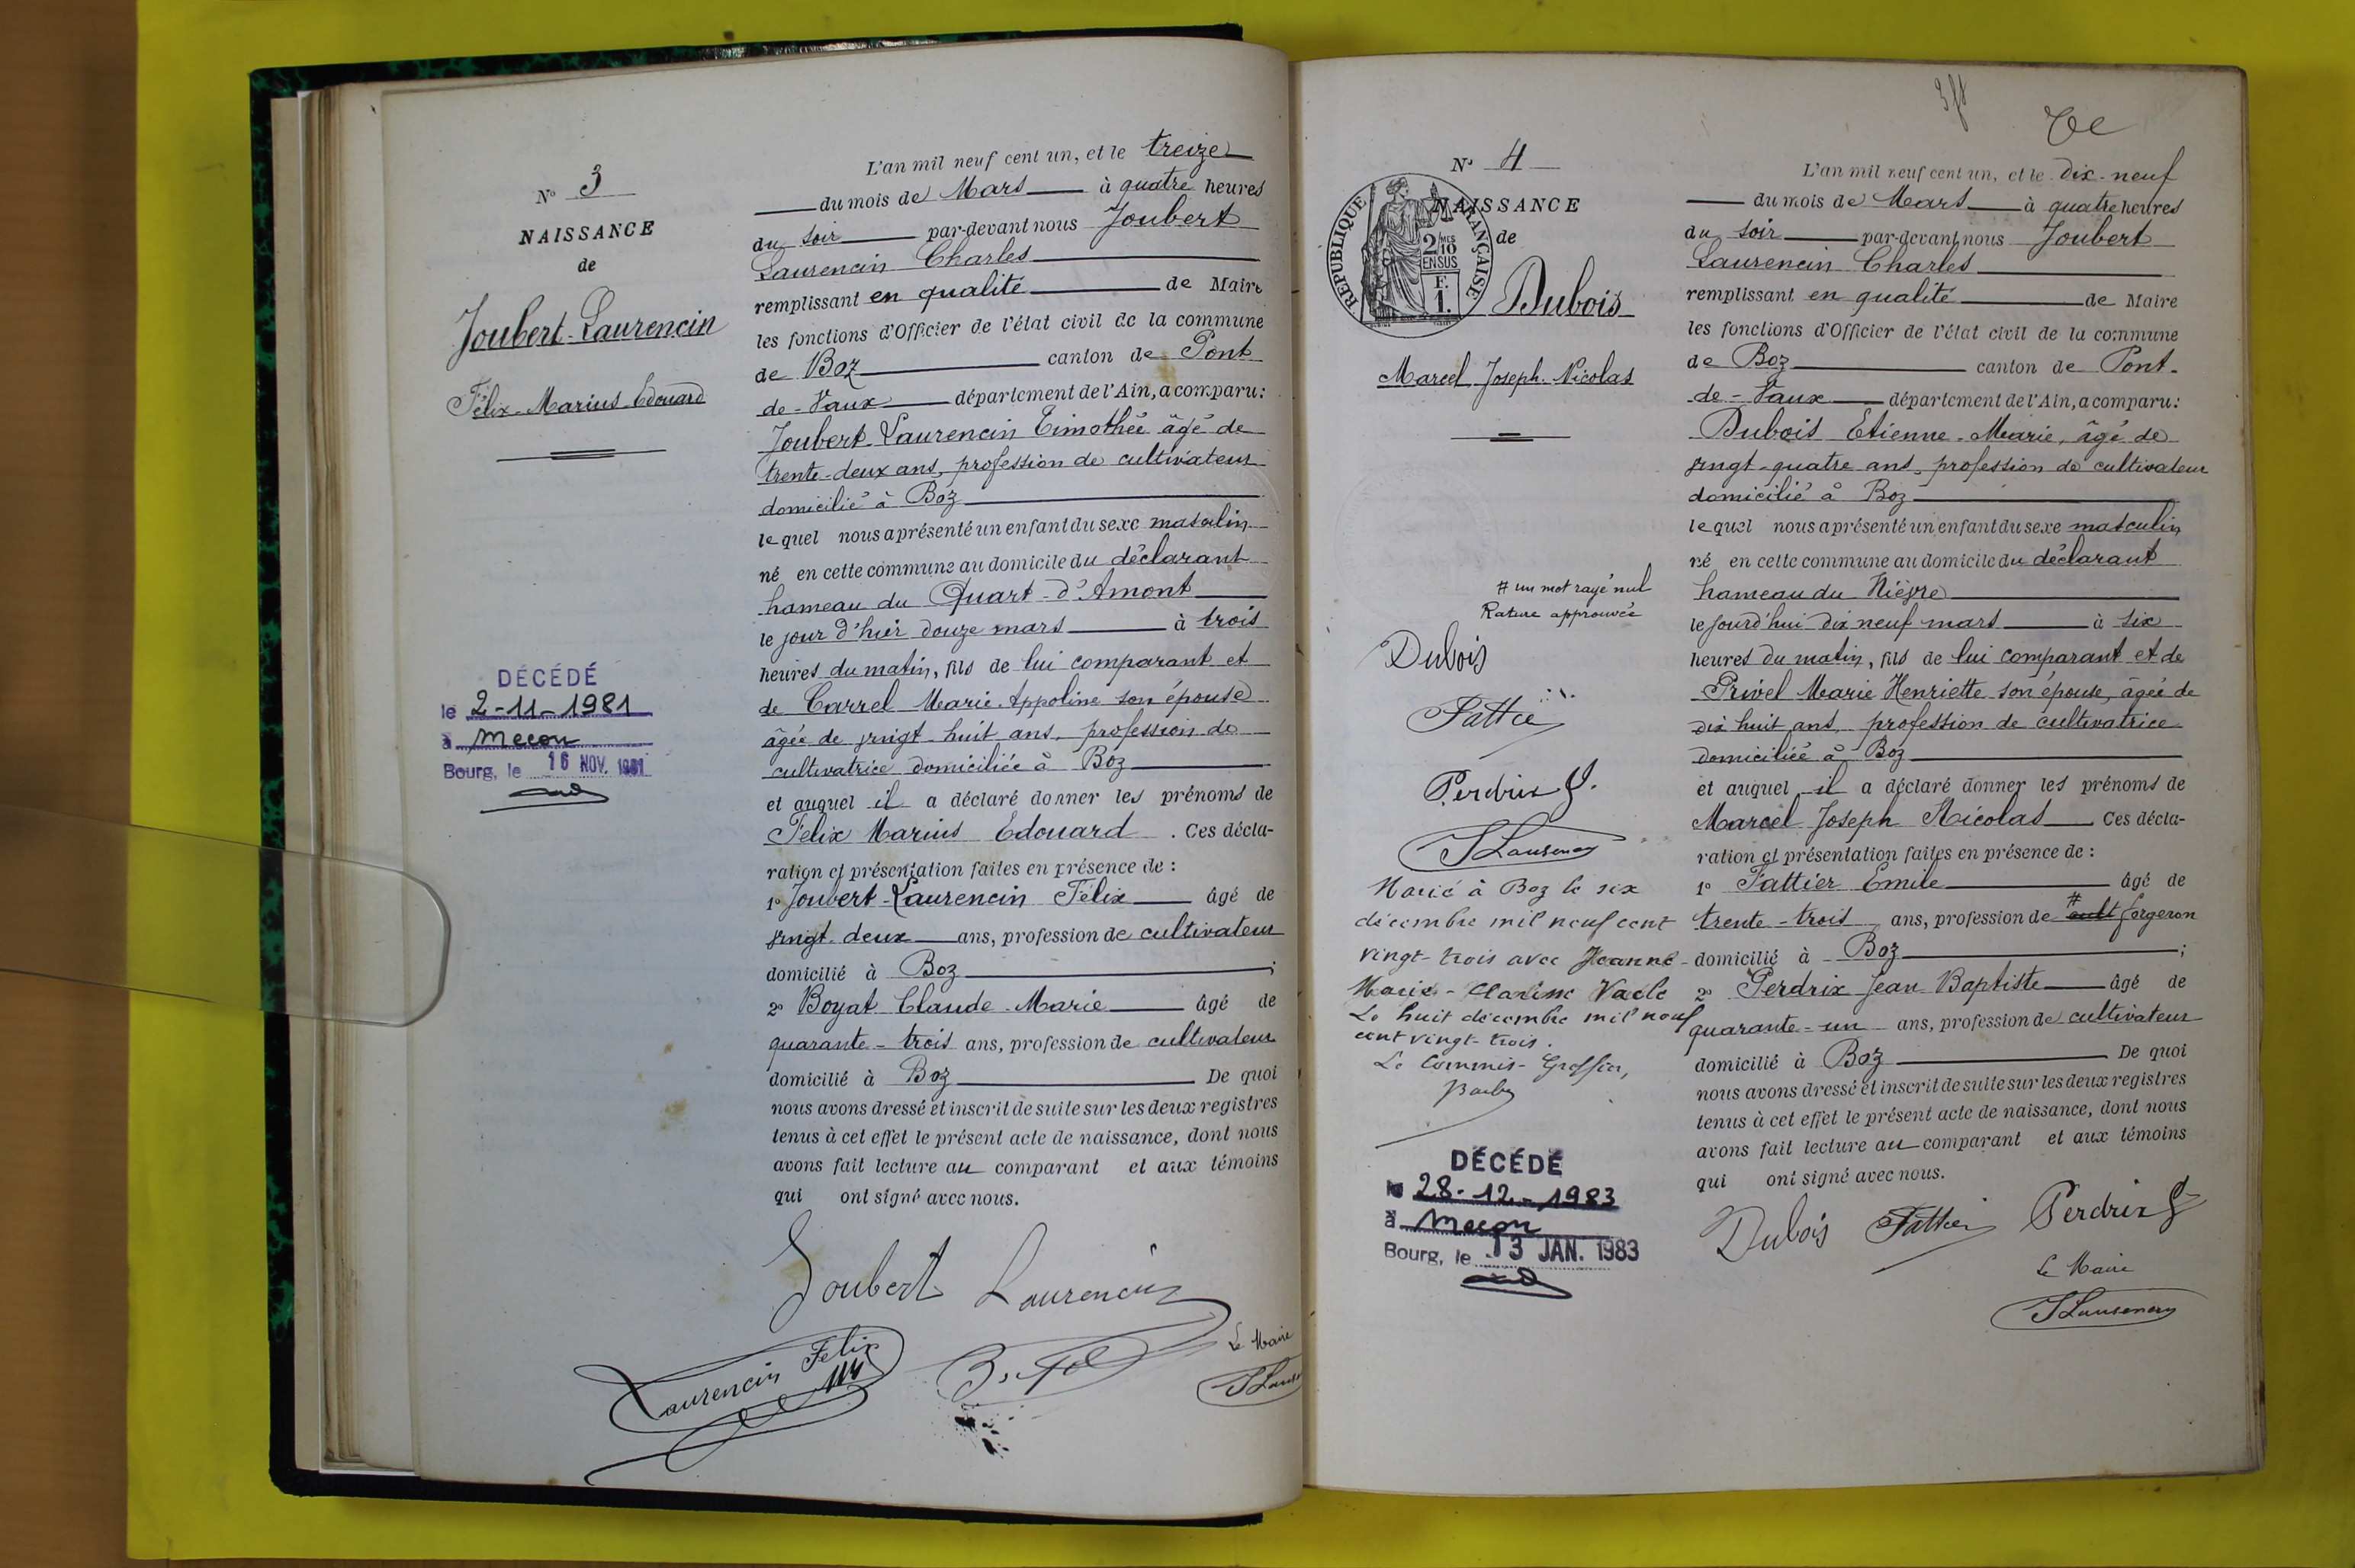 Nº 3
NAISSANCE
de
Joubert-Laurencin
Félix-Marius-Edouard
DÉCÉDÉ
le 2-11-1981
à Macon
Bourg, le 16 NOV. 1981
L'an mil neuf cent un, et le treize
du mois de Mars à quatre heures
du soir par-devant nous Joubert
Laurencin Charles
remplissant en qualité de Maire
les fonctions d'Officier de l'état civil de la commune
de Boz canton de Pont
de-Vaux département de l'Ain, a comparu:
Joubert-Laurencin Timothée âgé de
trente-deux ans, profession de cultivateur
domicilié à Boz
lequel nous a présenté un enfant du sexe masculin
né en cette commune au domicile du déclarant
hameau du Quart-d'Amont
le jour d'hier douze mars à trois
heures du matin, fils de lui comparant et
de Carrel Marie-Appoline son épouse
âgée de vingt-huit ans, profession de
cultivatrice domiciliée à Boz
et auquel il a déclaré donner les prénoms de
Felix Marius Edouard. Ces décla-
ration et présentation faites en présence de :
1º Joubert-Laurencin Félix âgé de
vingt-deux ans, profession de cultivateur
domicilié à Boz ;
2º Boyat Claude-Marie âgé de
quarante-trois ans, profession de cultivateur
domicilié à Boz De quoi
nous avons dressé et inscrit de suite sur les deux registres
tenus à cet effet le présent acte de naissance, dont nous
avons fait lecture au comparant et aux témoins
qui ont signé avec nous.
Joubert Laurencin
Laurencin Felix
Le Maire
Nº 4
NAISSANCE
de
RÉPUBLIQUE FRANÇAISE
2/10
EN SUS
F.
1.
Dubois
Marcel Joseph-Nicolas
# un mot rayé nul
Rature approuvée
Dubois
Fattier
Perdrix J.
Marié à Boz le six
décembre mil neuf cent
vingt-trois avec Jeanne-
Marie-Clarisse
Le huit décembre mil neuf
cent vingt-trois.
Le Commis-Greffier,
DÉCÉDÉ
le 28-12-1983
à Macon
Bourg, le 13 JAN. 1983
L'an mil neuf cent un, et le dix-neuf
du mois de Mars à quatre heures
du soir par-devant nous Joubert
Laurencin Charles
remplissant en qualité de Maire
les fonctions d'Officier de l'état civil de la commune
de Boz canton de Pont-
de-Vaux département de l'Ain, a comparu:
Dubois Etienne-Marie, âgé de
vingt-quatre ans, profession de cultivateur
domicilié à Boz
lequel nous a présenté un enfant du sexe masculin
né en cette commune au domicile du déclarant
hameau du Nièvre
le jourd'hui dix neuf mars à six
heures du matin, fils de lui comparant et de
Privel Marie Henriette son épouse, âgée de
dix huit ans, profession de cultivatrice
domiciliée à Boz
et auquel il a déclaré donner les prénoms de
Marcel Joseph Nicolas Ces décla-
ration et présentation faites en présence de :
1º Fattier Emile âgé de
trente-trois ans, profession de # cult forgeron
domicilié à Boz ;
2º Perdrix Jean Baptiste âgé de
quarante-un ans, profession de cultivateur
domicilié à Boz De quoi
nous avons dressé et inscrit de suite sur les deux registres
tenus à cet effet le présent acte de naissance, dont nous
avons fait lecture au comparant et aux témoins
qui ont signé avec nous.
Dubois Fattier Perdrix J
Le Maire